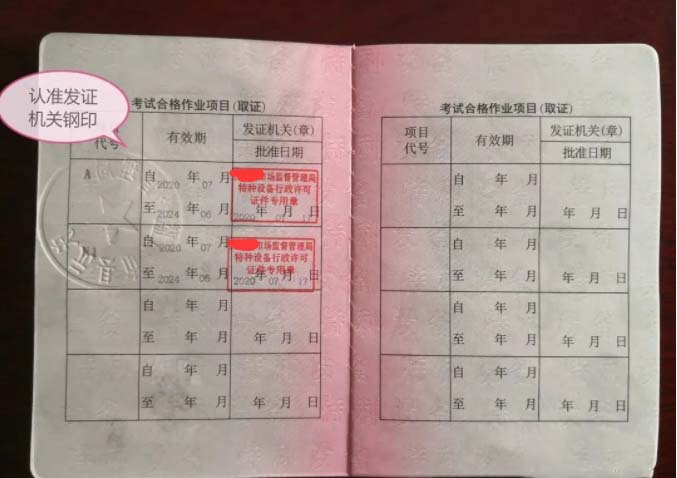 认准发证
机关钢印
考试合格作业项目(取证)
代号
有效期
发证机关(章)
批准日期
A
自2020年07月
至2024年06月
市场监督管理局
特种设备行政许可
证件专用章
2020年07月17日
自2020年07月
至2024年06月
市场监督管理局
特种设备行政许可
证件专用章
2020年07月17日
自 年 月
至 年 月
年 月 日
自 年 月
至 年 月
年 月 日
考试合格作业项目(取证)
项目
代号
有效期
发证机关(章)
批准日期
自 年 月
至 年 月
年 月 日
自 年 月
至 年 月
年 月 日
自 年 月
至 年 月
年 月 日
自 年 月
至 年 月
年 月 日